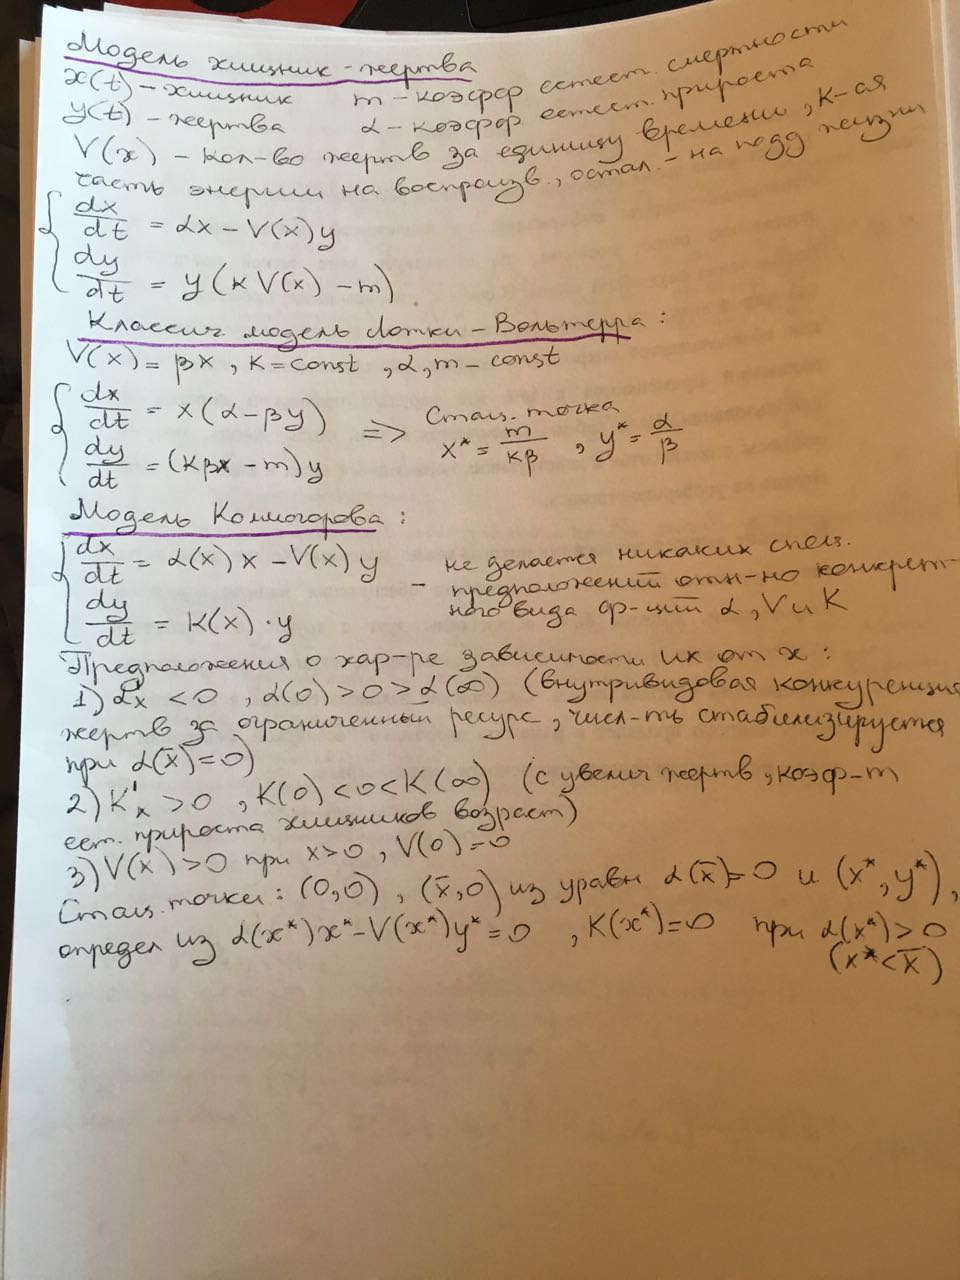 Модель хищник-жертва
x(t) - хищник m - коэффр естест. смертности
y(t) - жертва α - коэффр естест. прироста
V(x) - кол-во жертв за единицу времени, к-ая
часть энергии на воспроизв., остал. - на подд жизни
{ dx/dt = αx - V(x)y
dy/dt = y(k V(x) - m)
Классич. модель Лотки-Вольтерра:
V(x) = βx, k = const, α, m - const
{ dx/dt = x(α - βy) => Стац. точка
dy/dt = (kβx - m)y x* = m/kβ, y* = α/β
Модель Колмогорова:
{ dx/dt = α(x)x - V(x)y - не делается никаких спец.
предположений отн-но конкрет-
dy/dt = K(x)·y ного вида ф-ций α, V и K
Предположения о хар-ре зависимости их от x:
1) α'x < 0, α(0) > 0 > α(∞) (внутривидовая конкуренция
жертв за ограниченный ресурс, числ-ть стабилизируется
при α(x̄) = 0)
2) K'x > 0, K(0) < 0 < K(∞) (с увелич жертв, коэф-т
ест. прироста хищников возраст)
3) V(x) > 0 при x > 0, V(0) = 0
Стац. точки: (0, 0), (x̄, 0) из уравн α(x̄) = 0 и (x*, y*),
определ из α(x*)x* - V(x*)y* = 0, K(x*) = 0 при α(x*) > 0
(x* < x̄)